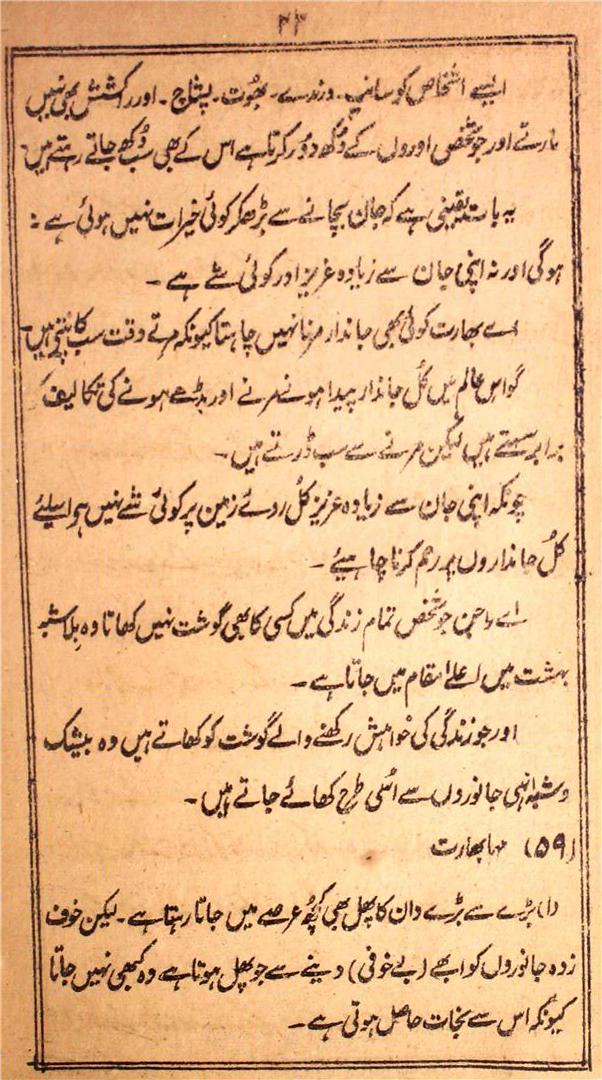 ۴۳
ایسے اشخاص کو سانپ۔ درندے۔ بھوت۔ پشاچ۔ اور راکشش بھی نہیں
مارتے اور جو شخص اوروں کے دُکھ دُور کرتا ہے اس کے بھی سب دُکھ جاتے رہتے ہیں۔
یہ بات یقینی ہے کہ جان بچانے سے بڑھکر کوئی خیرات نہیں ہوئی ہے نہ
ہوگی اور نہ اپنی جان سے زیادہ عزیز اور کوئی شے ہے۔
اے بھارت کوئی بھی جاندار مرنا نہیں چاہتا کیونکہ مرتے وقت سب کانپتے ہیں۔
گو اس عالم میں کُل جاندار پیدا ہونے مرنے اور بڈھے ہونے کی تکالیف
برابر سہتے ہیں لیکن مرنے سے سب ڈرتے ہیں۔
چونکہ اپنی جان سے زیادہ عزیز کُل روئے زمین پر کوئی شے نہیں ہو اسلئے
کُل جانداروں پر رحم کرنا چاہیئے۔
اے راجن جو شخص تمام زندگی میں کسی کا بھی گوشت نہیں کھاتا وہ بلاشبہ
بہشت میں اعلےٰ مقام میں جاتا ہے۔
اور جو زندگی کی خواہش رکھنے والے گوشت کو کھاتے ہیں وہ بیشک
و شبہ انہی جانوروں سے اُسی طرح کھائے جاتے ہیں۔
(۵۹) مہابھارت
(۱) بڑے سے بڑے دان کا پھل بھی کچھ عرصے میں جاتا رہتا ہے۔ لیکن خوف
زدہ جانوروں کو ابھے (بے خوفی) دینے سے جو پھل ہوتا ہے وہ کبھی نہیں جاتا
کیونکہ اس سے نجات حاصل ہوتی ہے۔